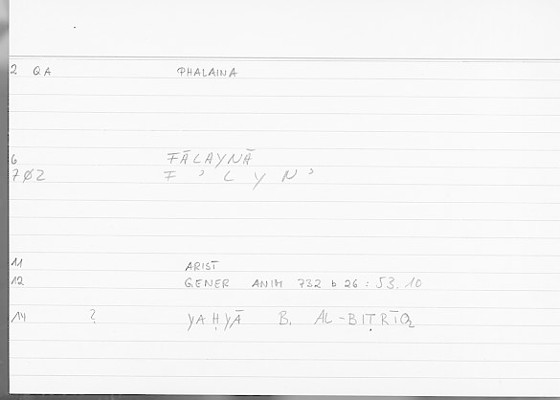 2 QA PHALAINA
6 FĀLAYNĀ
7Ø2 F ʾ L Y N ʾ
11 ARIST
12 GENER ANIM 732 b 26 : 53.10
14 ? YAḤYĀ B. AL-BIṬRĪQ